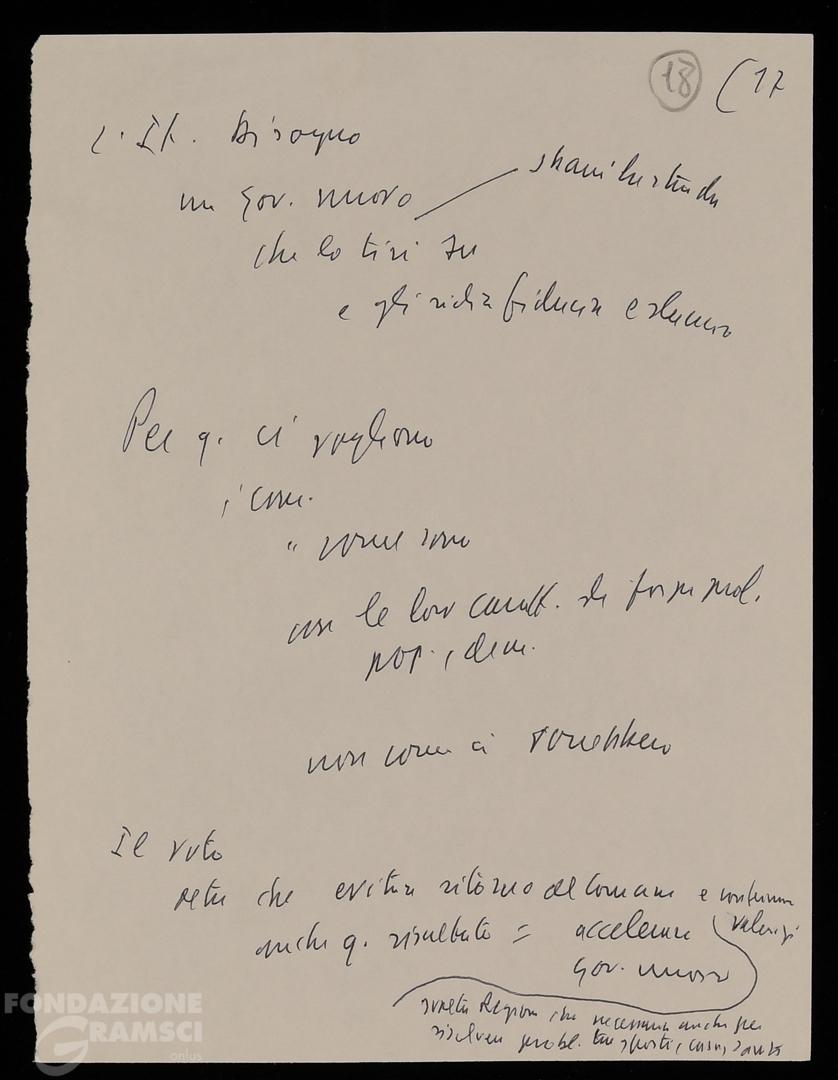 18 (17
L'It. Bisogno
un Gov. nuovo
che lo tiri su
e gli ridia fiducia e slancio
Per q. ci vogliono
i com.
" come sono
con le loro caratt. di forza prol.
pop., dem.
non come ci vorrebbero
Il voto
oltre che evitare ritorno al comune e confermare
Valenzi
anche q. risultato = accelerare
Gov. nuovo
svolta Regione che necessaria anche per
risolvere probl. trasporti, casa, sanità
FONDAZIONE
GRAMSCI
onlus